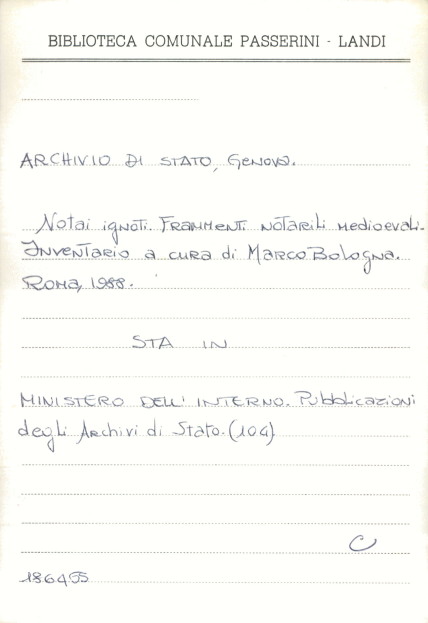 BIBLIOTECA COMUNALE PASSERINI - LANDI
ARCHIVIO DI STATO, GENOVA.
Notai ignoti. Frammenti notarili medioevali.
Inventario a cura di Marco Bologna.
Roma, 1988.
STA IN
MINISTERO DELL'INTERNO. Pubblicazioni
degli Archivi di Stato. (104)
C
186455